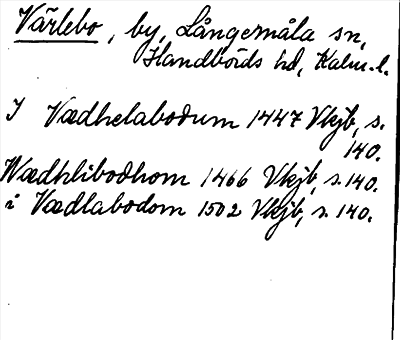 Värlebo, by, Långemåla sn,
Handbörds hd, Kalm. l.
I Vædhelabodum 1447 Vkjb, s.
140.
Wædhlibodhom 1466 Vkjb, s. 140.
i Vædlabodom 1502 Vkjb, s. 140.